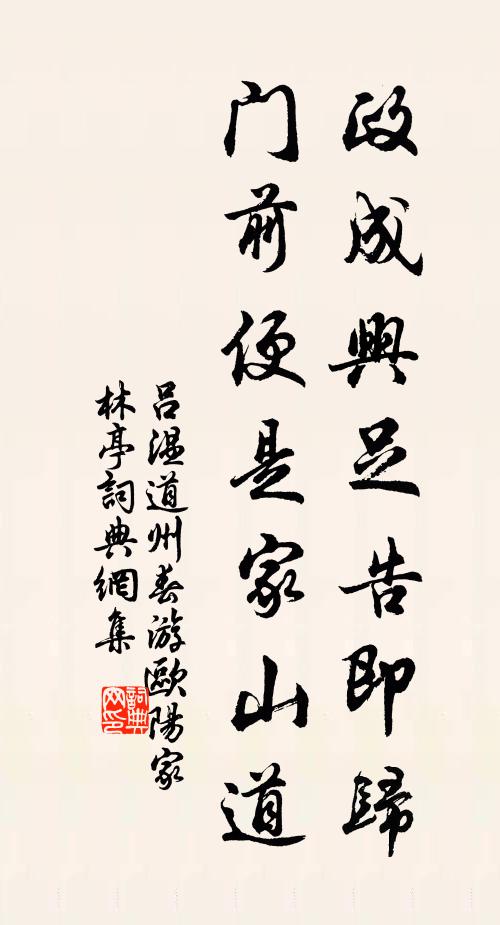 政成興足告即歸
门前便是家山道
吕温道州春游歐陽家
林亭詞典網集
詞典
网印